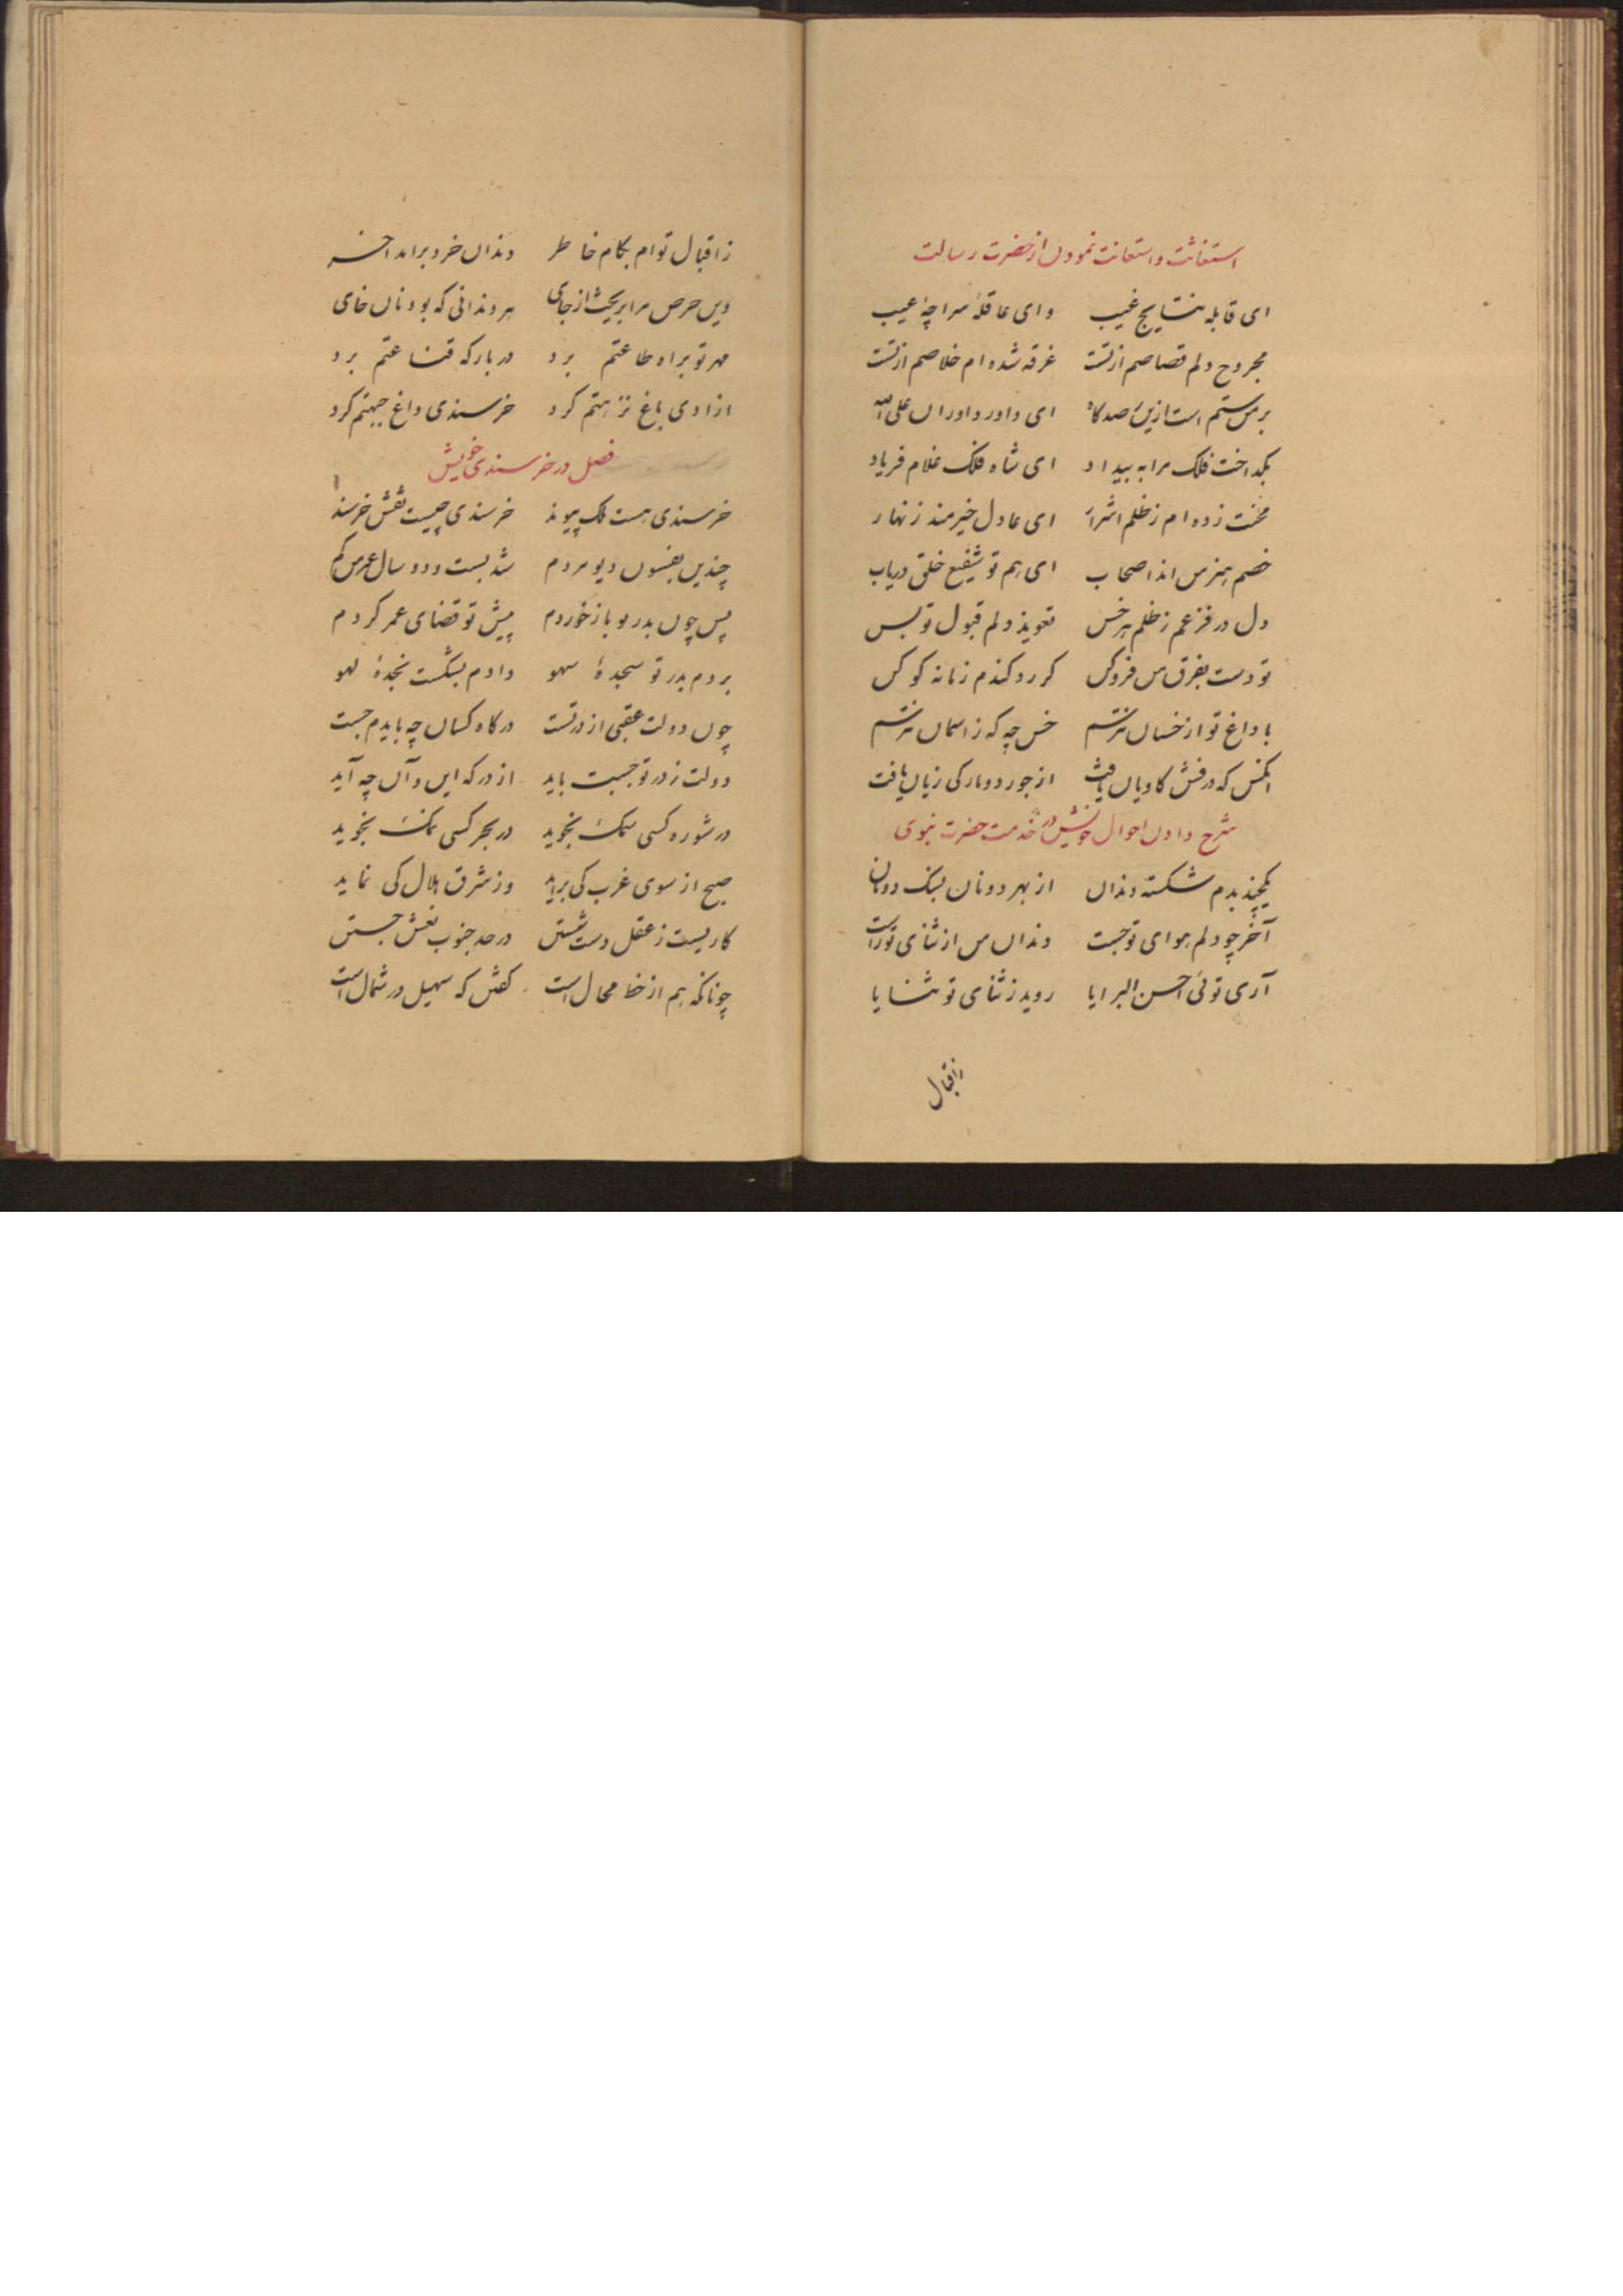 استغاثت و استعانت نمودن از حضرت رسالت
ای قابله نتایج غیب و ای عاقله سراچه عیب
مجروح دلم قصاصم از تست غرقه شده ام خلاصم از تست
بر من ستم است ازین ای داور داوران علی الله
بگداخت فلک مرا به بیداد ای شاه فلک غلام فریاد
محنت زده ام ز ظلم اشرار ای عادل خیرمند زنهار
خصم هنر من اند اصحاب ای هم تو شفیع خلق دریاب
دل در فزعم ز ظلم هر خس تعویذ دلم قبول تو بس
تو دست بفرق من فروکن کر رد کندم زمانه کو کن
با داغ تو از خسان نترسم خس چه که ز اسمان نترسم
انکس که درفش کاویان یافت از جور دو مار کی زیان یافت
شرح دادن احوال خویش در خدمت حضرت نبوی
یکچند بدم شکسته دندان از بهر دو نان بسنک دونان
آخر چو دلم هوای تو جست دندان من از ثنای تو راست
آری توئی احسن البرایا روید ز ثنای تو ثنایا
زاقبال
زاقبال توام بکام خاطر دندان خرد براند اخر
وین حرص مرا بریخت از جای هر دندانی که بود نان خای
مهر تو براه طاعتم برد در بارکه قناعتم برد
ازادی باغ نزهتم کرد خرسندی داغ جبهتم کرد
فصل در خرسندی خویش
خرسندی هست ملک پیوند خرسندی چیست نقش خرسند
چندین بفسون دیو مردم شد بیست و دو سال عمر من کم
پس چون بدر تو باز خوردم پیش تو قضای عمر کردم
بردم بدر تو سجدهٔ سهو دادم بشکست نجدهٔ لهو
چون دولت عقبی از در تست درکاه کسان چه بایدم جست
دولت ز در تو جست باید از درکه این و آن چه آید
در شوره کسی سمک نجوید در بحر کسی نمک نجوید
صبح از سوی غرب کی براید وز شرق هلال کی نماید
کاریست ز عقل دست شستن در حد جنوب نعش جستن
چونانکه هم از خط محال است کفتن که سهیل در شمال است